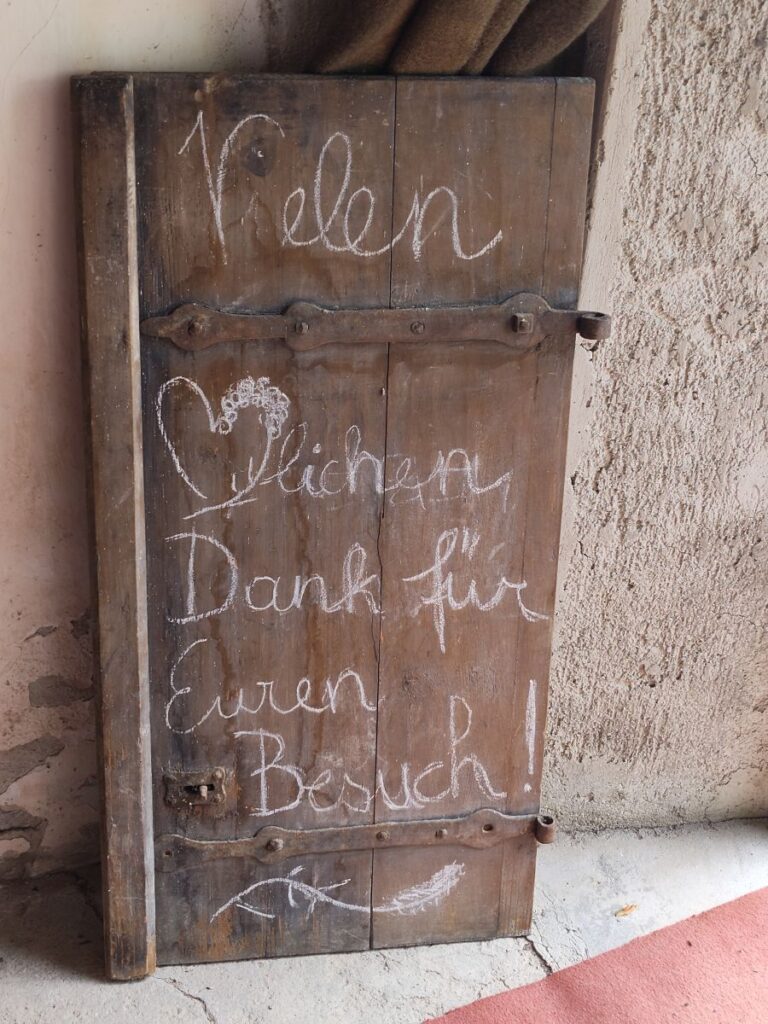 Vielen
♡lichen
Dank für
Euren
Besuch!